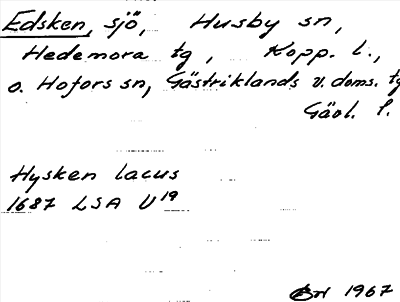 Edsken, sjö, Husby sn,
Hedemora tg, Kopp. l.,
o. Hofors sn, Gästriklands v. doms. tg
Gävl. l.
Hysken lacus
1687 LSA U19
1967